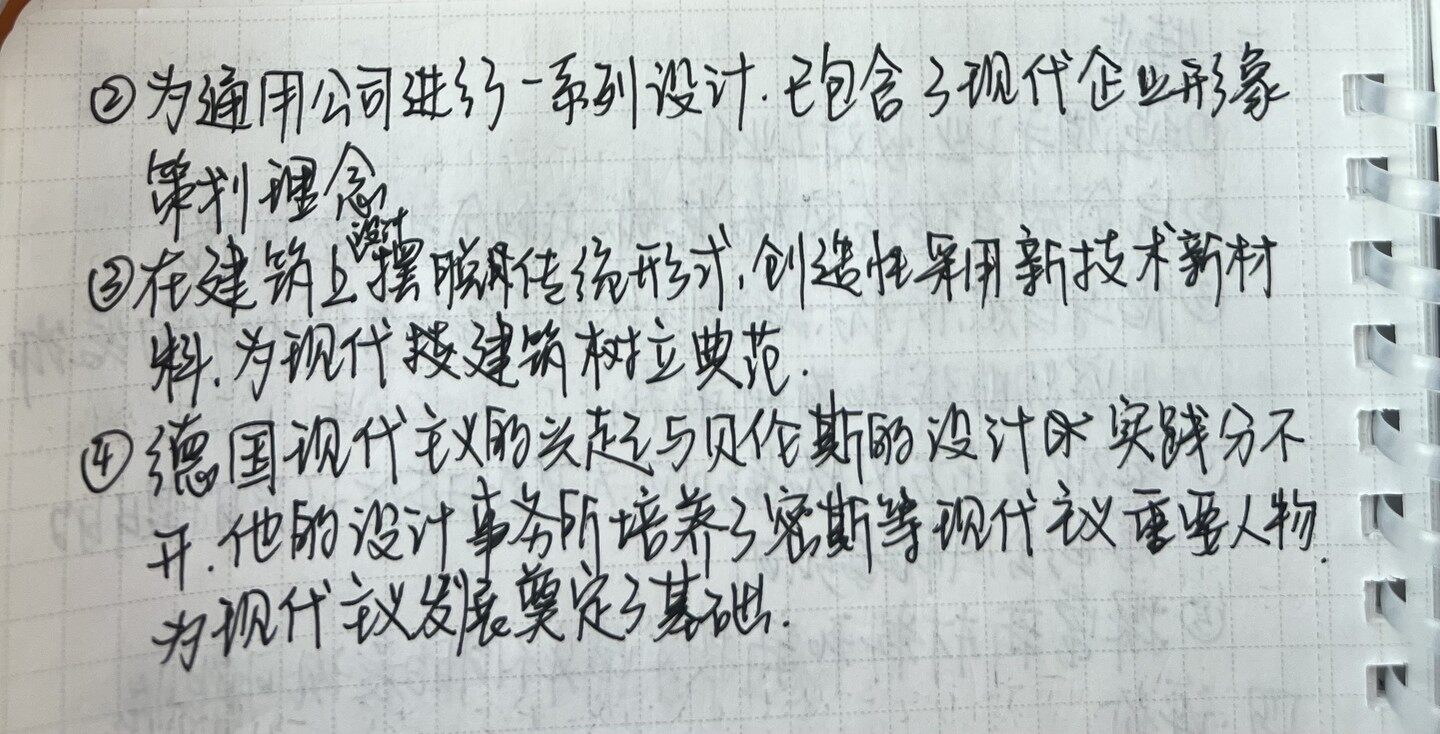 ②为通用公司进行一系列设计.已包含了现代企业形象
策划理念
③在建筑上设计摆脱传统形式,创造性采用新技术新材
料.为现代建筑树立典范.
④德国现代主义的兴起与贝伦斯的设计实践分不
开.他的设计事务所培养了密斯等现代主义重要人物.
为现代主义发展奠定了基础.